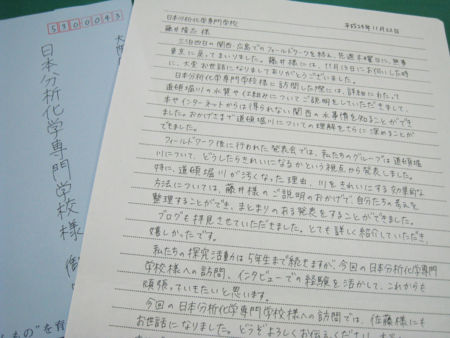 5300043
大阪
日本分析化学専門学校様
"もの"を
日本分析化学専門学校
平成24年11月22日
藤井 様
三泊四日の関西・広島でのフィールドワークを終え、先週木曜日に、無事
東京に戻ってまいりました。藤井様には、11月13日にお伺いした時
に、大変お世話になりましてありがとうございました。
日本分析化学専門学校様に訪問した際には、詳細にわたって
道頓堀川の水質や仕組みについてご説明をしていただきまして、
本やインターネットからは得られない関西の水事情を知ることができ
ました。おかげさまで道頓堀川についての理解をさらに深めることが
できました。
フィールドワーク後に行われた発表会では、私たちのグループは道頓堀
川について、どうしたらきれいになるかという視点から発表しました。
特に、道頓堀川が汚くなった理由、川をきれいにする効果的な
方法については、藤井様のご説明のおかげで、自分たちの考えを
整理することができ、まとまりのある発表をすることができました。
ブログも拝見させていただきました。とても詳しく紹介していただき、
嬉しかったです。
私たちの探究活動は5年生まで続きますが、今回の日本分析化学専門
学校様への訪問、インタビューでの経験を活かして、これからも
頑張っていきたいと思います。
今回の日本分析化学専門学校様への訪問では、佐藤様にも
お世話になりました。どうぞよろしくお伝えください。